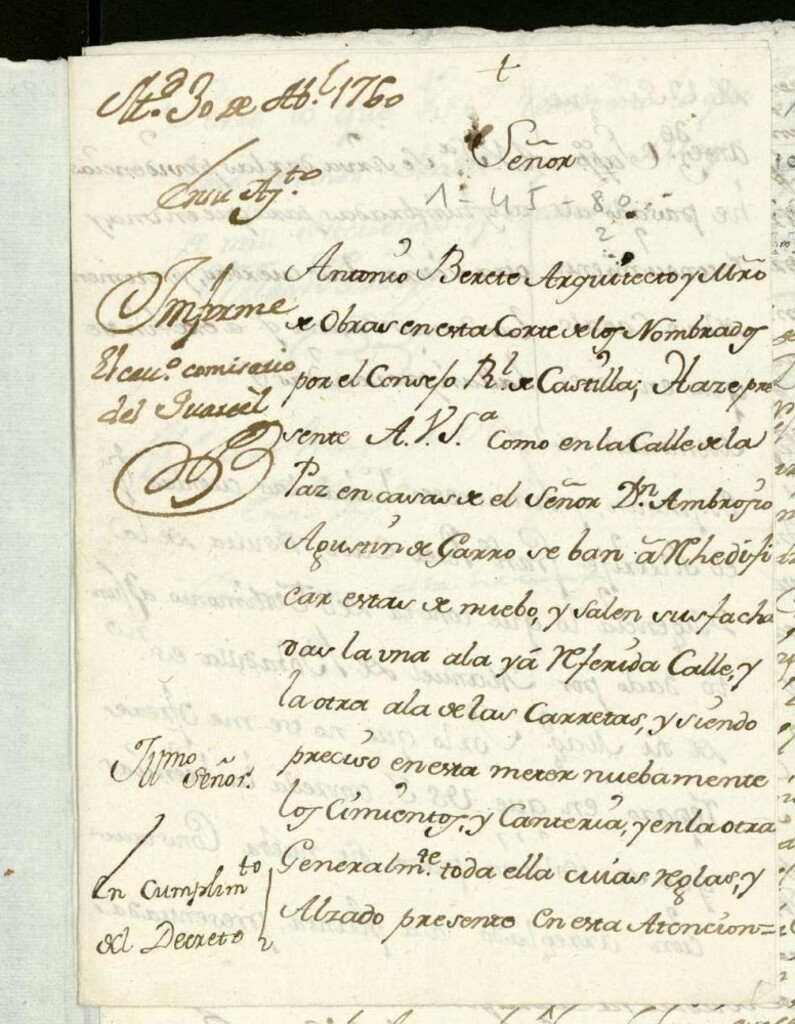 +
M.d 30 de Ab.l 1760
En su Ay.to
Señor
1-45-80
2
Informe
El cav.o comisario
del Quartel
Antonio Berete Arquitecto y Mro
de Obras en esta Corte de los Nombrados
por el Consejo Rl. de Castilla; Haze pre
sente A.V.S.a como en la Calle de la
Paz en casas de el Señor Dn. Ambrosio
Agustin de Garro se ban â Rhedifi
car estas de nuebo, y salen sus facha
das la vna ala yâ Referida Calle, y
la otra ala de las Carretas, y siendo
preciso en esta meter nuebamente
los Cimientos, y Canteria, y en la otra
Generalm.te toda ella cuias reglas, y
Alzado presento en esta Atencion=
Illmo
Señor.
En Cumplim.to
del Decreto